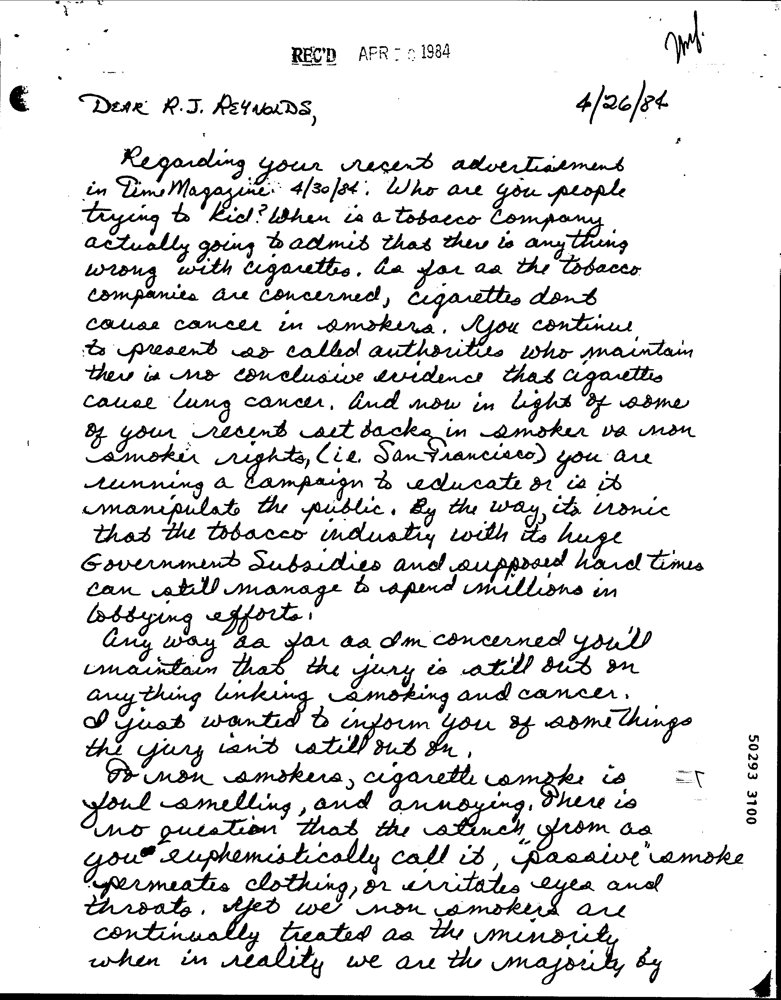 REC'D APR 1984
4/26/84
DEAR R.J. REYNOLDS,
Regarding your recent advertisement
in Time Magazine 4/30/84. Who are you people
trying to kid? When is a tobacco company
actually going to admit that there is anything
wrong with cigarettes. As far as the tobacco
companies are concerned, cigarettes dont
cause cancer in smokers. You continue
to present so called authorities who maintain
there is no conclusive evidence that cigarettes
cause lung cancer. And now in light of some
of your recent set backs in smoker vs non
smoker rights, (ie. San Francisco) you are
running a campaign to educate or is it
manipulate the public. By the way, its ironic
that the tobacco industry with its huge
Government Subsidies and supposed hard times
can still manage to spend millions in
lobbying efforts.
Any way as far as Im concerned you'll
maintain that the jury is still out on
anything linking smoking and cancer.
I just wanted to inform you of some things
the jury isn't still out on.
To non smokers, cigarette smoke is
foul smelling, and annoying. There is
no question that the stench from as
you euphemistically call it, "passive" smoke
permeates clothing, or irritates eyes and
throats. Yet we non smokers are
continually treated as the minority
when in reality we are the majority by
50293 3100